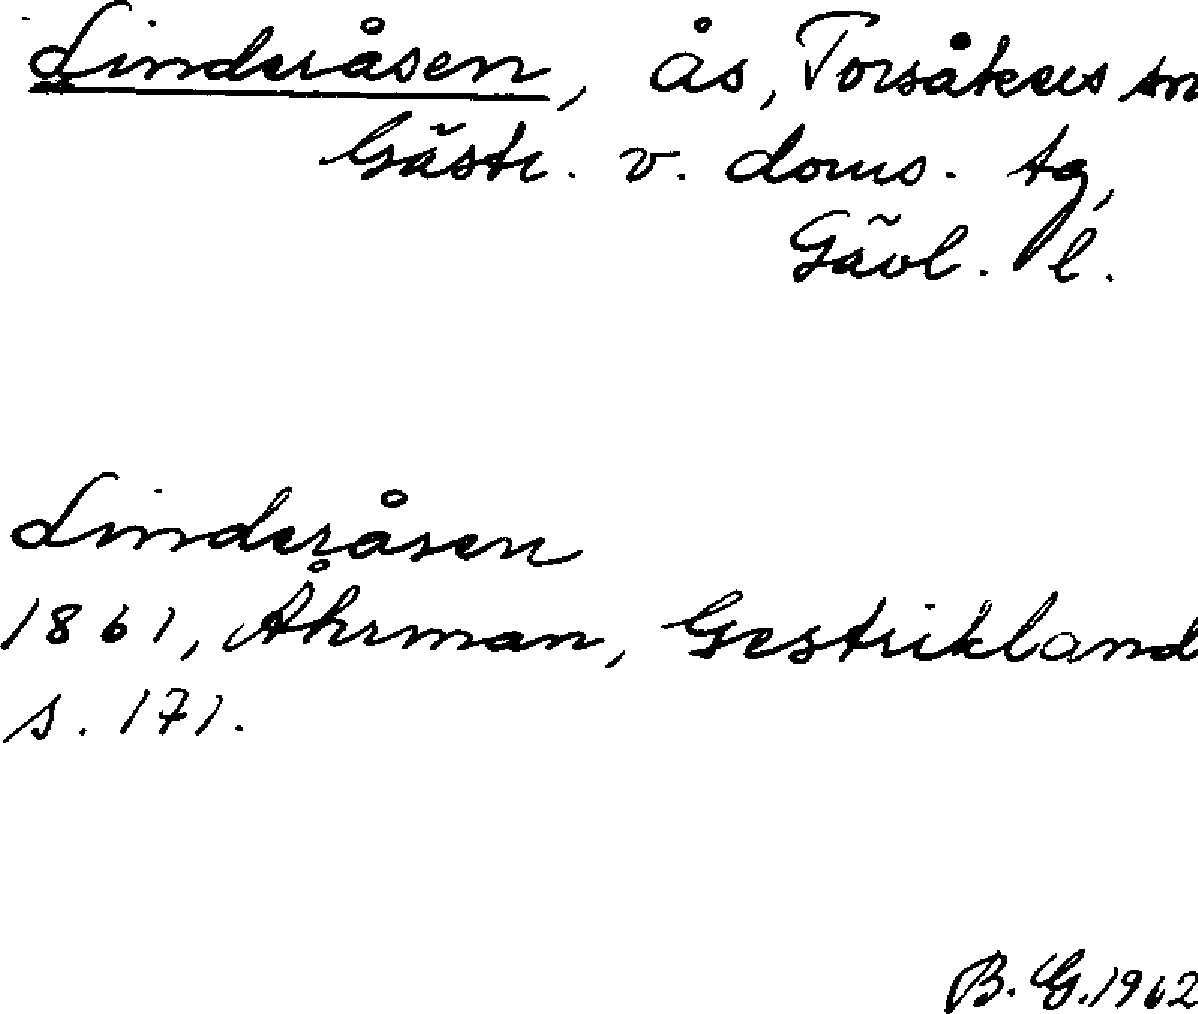 Linderåsen, ås, Torsåkers sn
Gästr. v. doms. tg,
Gävl. l.
Linderåsen
1861, Åhrman, Gestrikland
s. 171.
B. G. 1962